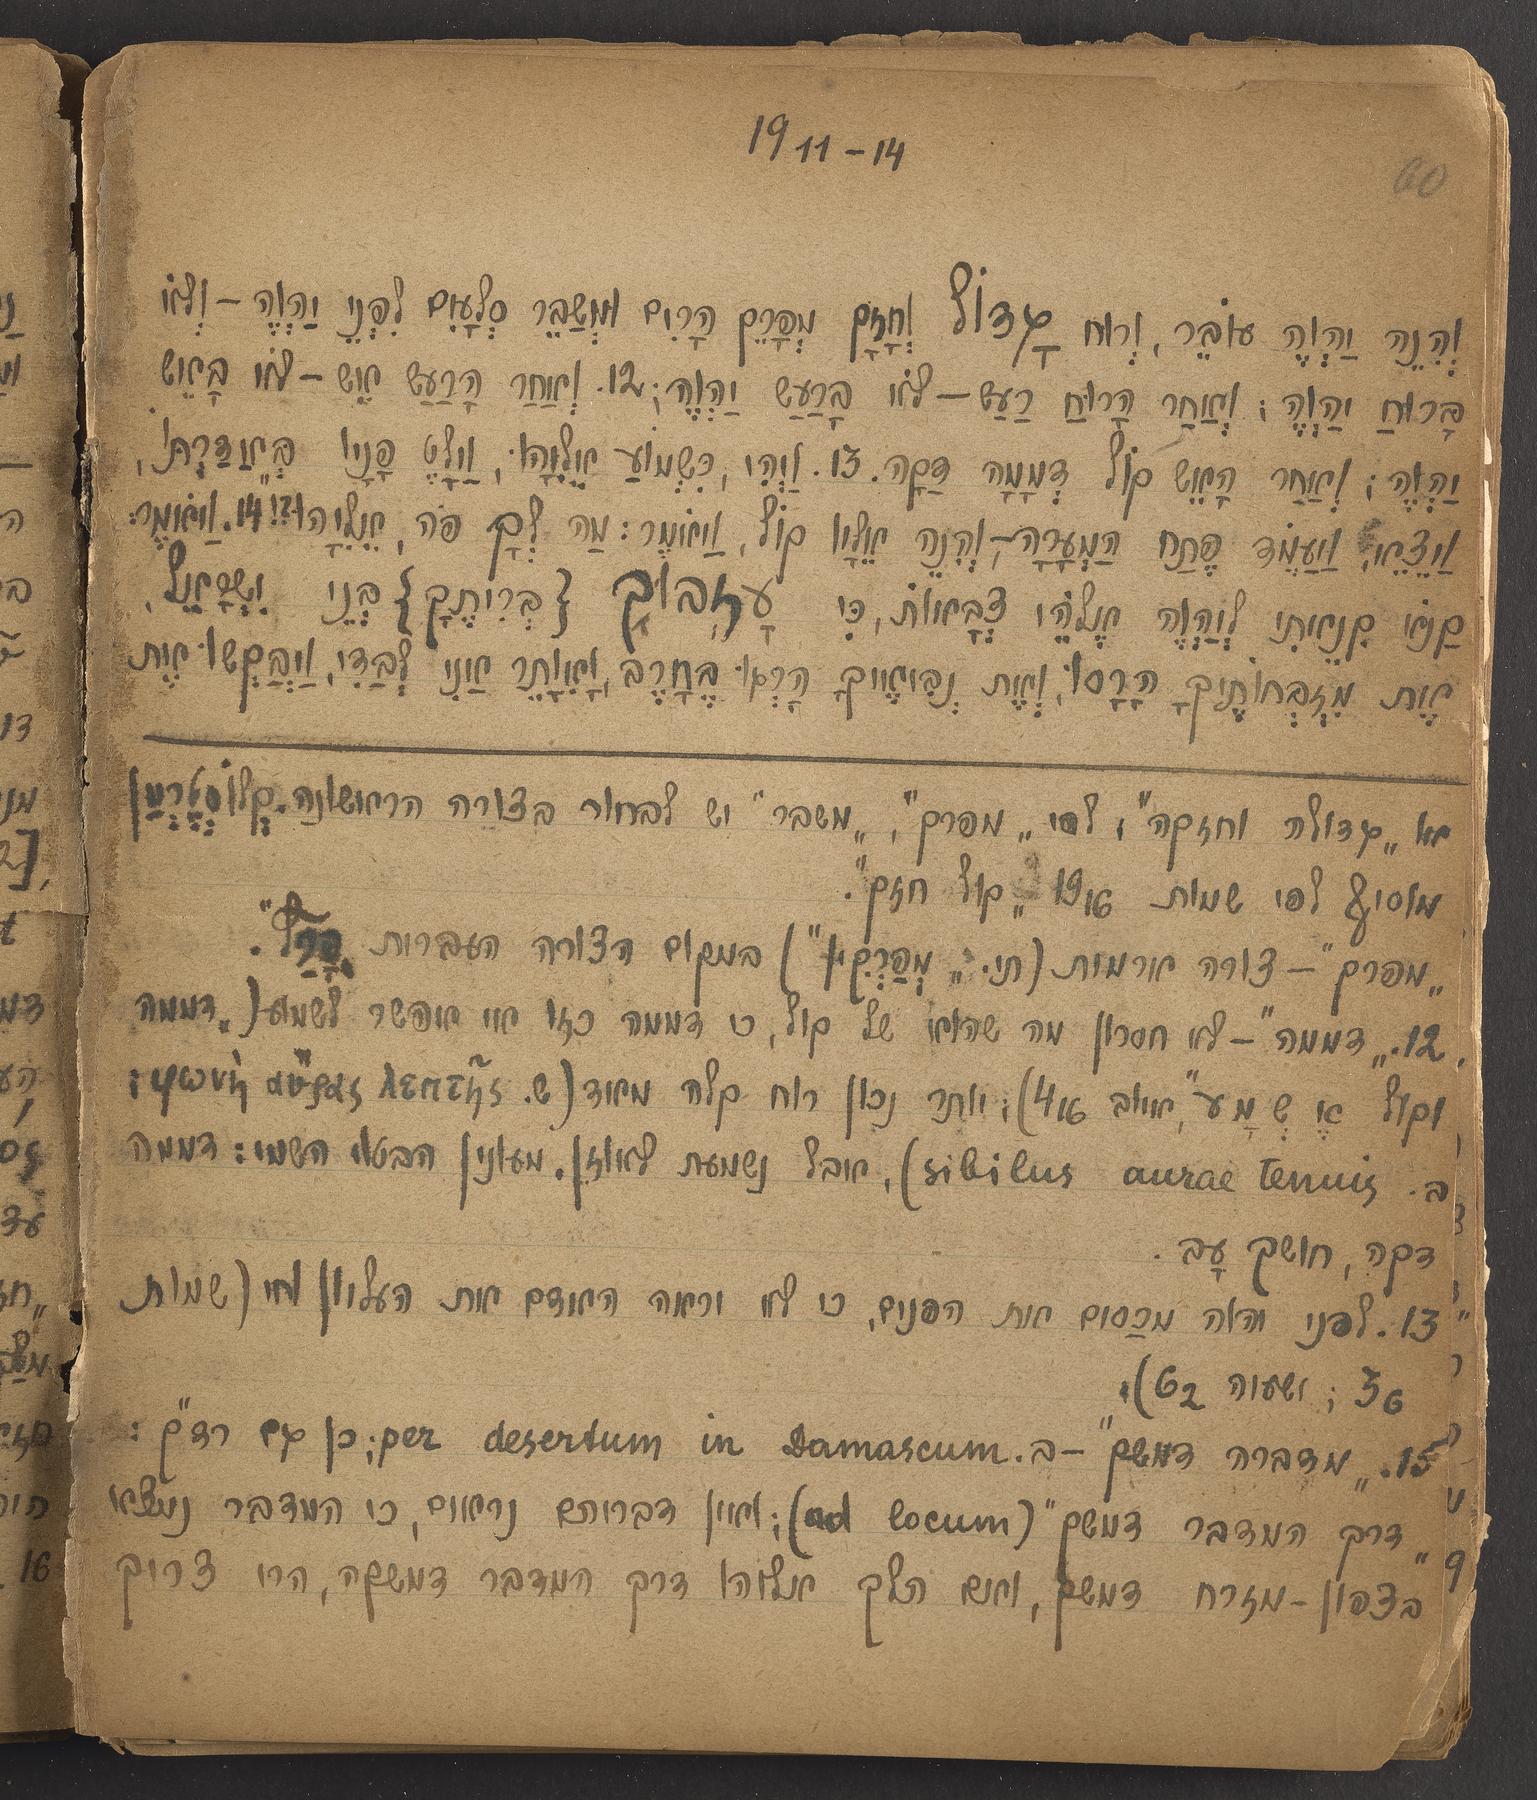 19 11-14
60
וְהִנֵּה יַהְוֶה עוֹבֵר, וְרוּחַ גָּדוֹל וְחָזָק מְפָרֵק הָרִים וּמְשַׁבֵּר סְלָעִים לִפְנֵי יַהְוֶה – וְלֹא
בָרוּחַ יַהְוֶה; וְאַחַר הָרוּחַ רַעַשׁ – לֹא בָרַעַשׁ יַהְוֶה; 12. וְאַחַר הָרַעַשׁ אֵשׁ – לֹא בָאֵשׁ
יַהְוֶה; וְאַחַר הָאֵשׁ קוֹל דְּמָמָה דַקָּה. 13. וַיְהִי, כִּשְׁמוֹעַ אֵלִיָּהוּ, וַיָּלֶט פָּנָיו בְּאַדַּרְתּוֹ,
וַיֵּצֵא, וַיַּעֲמֹד פֶּתַח הַמְּעָרָה – וְהִנֵּה אֵלָיו קוֹל, וַיֹּאמֶר: מַה לְּךָ פֹה, אֵלִיָּהוּ?! 14. וַיֹּאמֶר:
קַנֹּא קִנֵּאתִי לְיַהְוֶה אֱלֹהֵי צְבָאוֹת, כִּי עֲזָבוּךָ {בְּרִיתֶךָ} בְּנֵי יִשְׂרָאֵל,
אֶת מִזְבְּחוֹתֶיךָ הָרָסוּ, וְאֶת נְבִיאֶיךָ הָרְגוּ בֶחָרֶב, וָאִוָּתֵר אֲנִי לְבַדִּי, וַיְבַקְשׁוּ אֶת
יא „גדולה וחזקה"; לפי „מפרק", „משבר" יש לבחור בצורה הראשונה. קְלוֹסְטֶרְמַן
מוסיף לפי שמות 19 16 „קול חזק".
„מפרק" – צורה ארמית (תי. „מְפַרְקִין") במקום הצורה העברית פָּרַק".
12. „דממה" – לא חסרון מה שהוא של קול, כי דממה כזו אי אפשר לשמע („דממה
וקול אֶשְׁמָע", איוב 4 16); יותר נכון רוח קלה מאוד (ש. φωνὴ αὔρας λεπτῆς;
ב. sibilus aurae tenuis), אבל נשמעת לאוזן. מעונין הבטוי השמי: דממה
דקה, חושך עָב.
13. לפני יהוה מכַסים את הפנים, כי לא יראה האדם את העליון וחי (שמות
3 6; ישעיה 6 2).
15. „מדברה דמשק" – ב. per desertum in Damascum; כן גם רד"ק:
„דרך המדבר דמשק" (ad locum); ואין דבריהם נראים, כי המדבר נמצא
בצפון-מזרח דמשק, ואם הלך אליהו דרך המדבר דמשקה, הרי צריך